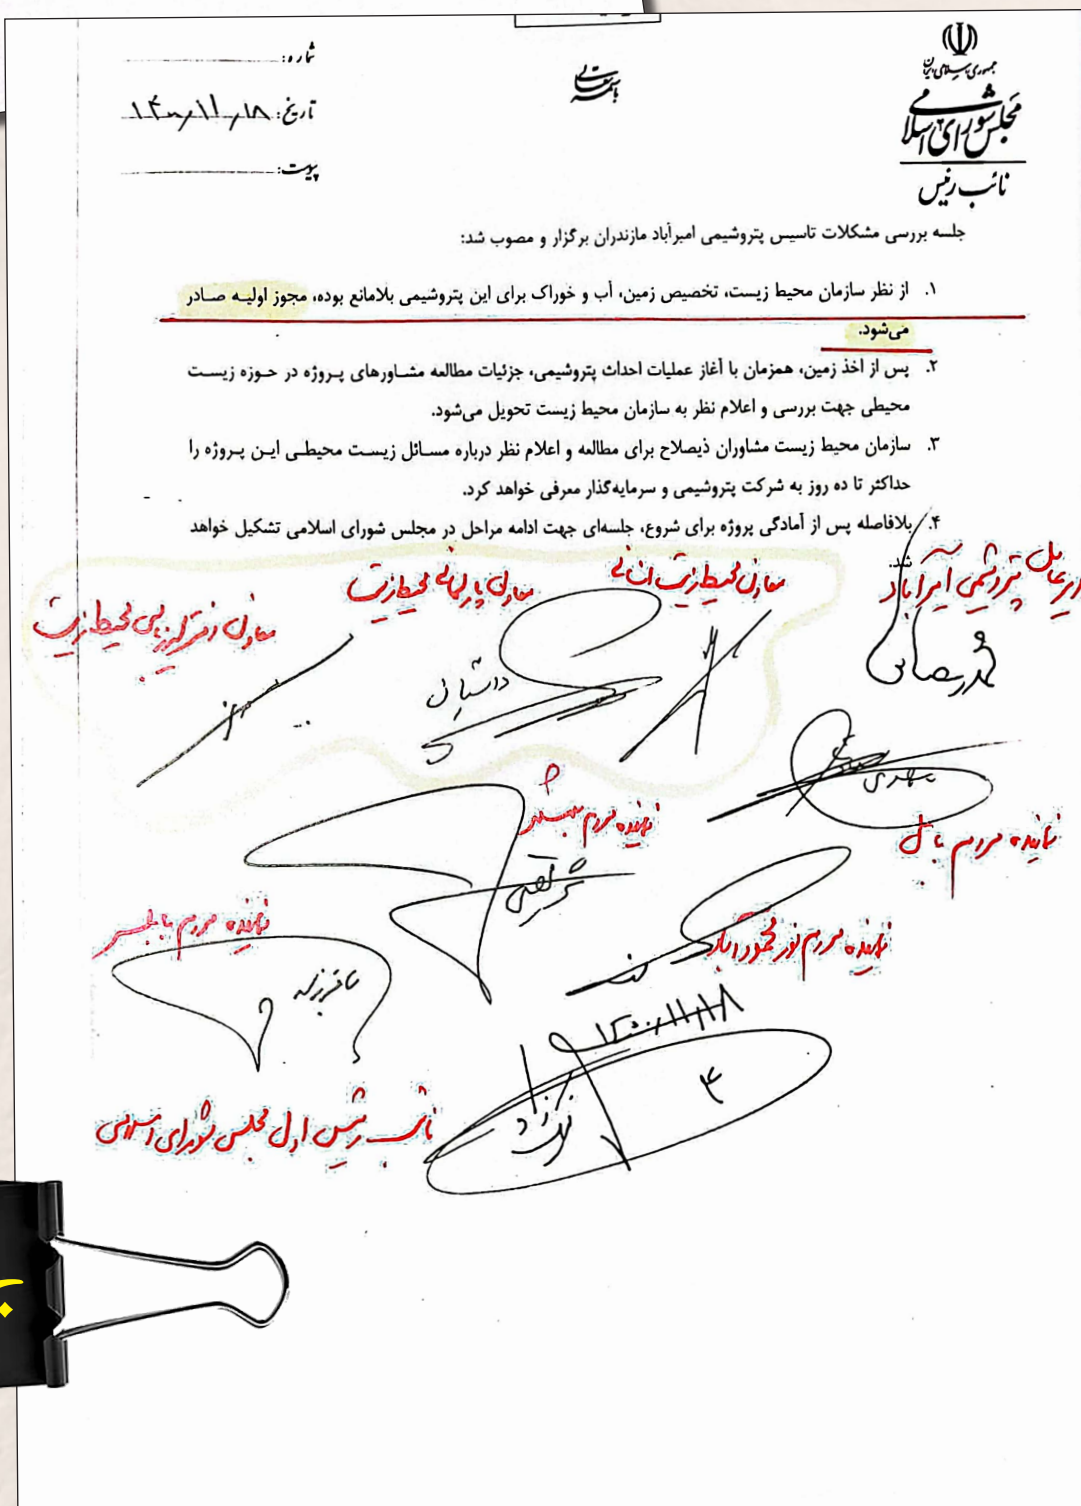 باسمه تعالی
جمهوری اسلامی ایران
مجلس شورای اسلامی
نائب رئیس
شماره:
تاریخ: ۱۴۰۰/۱۱/۱۸
پیوست:
جلسه بررسی مشکلات تاسیس پتروشیمی امیرآباد مازندران برگزار و مصوب شد:
۱. از نظر سازمان محیط زیست، تخصیص زمین، آب و خوراک برای این پتروشیمی بلامانع بوده، مجوز اولیه صادر
می‌شود.
۲. پس از اخذ زمین، همزمان با آغاز عملیات احداث پتروشیمی، جزئیات مطالعه مشاورهای پروژه در حوزه زیست
محیطی جهت بررسی و اعلام نظر به سازمان محیط زیست تحویل می‌شود.
۳. سازمان محیط زیست مشاوران ذیصلاح برای مطالعه و اعلام نظر درباره مسائل زیست محیطی این پروژه را
حداکثر تا ده روز به شرکت پتروشیمی و سرمایه‌گذار معرفی خواهد کرد.
۴. بلافاصله پس از آمادگی پروژه برای شروع، جلسه‌ای جهت ادامه مراحل در مجلس شورای اسلامی تشکیل خواهد
شد.
پتروشیمی امیرآباد
معاون محیط زیست انسانی
معاون پارلمانی محیط زیست
معاون دفتر ارزیابی محیط زیست
محمدرضا
داستانی
مهدی
نماینده مردم بابل
نماینده مردم بهشهر
شریعتی
نماینده مردم نور محمودآباد
نماینده مردم بابلسر
۱۴۰۰/۱۱/۱۸
نیکزاد
نائب رئیس اول مجلس شورای اسلامی